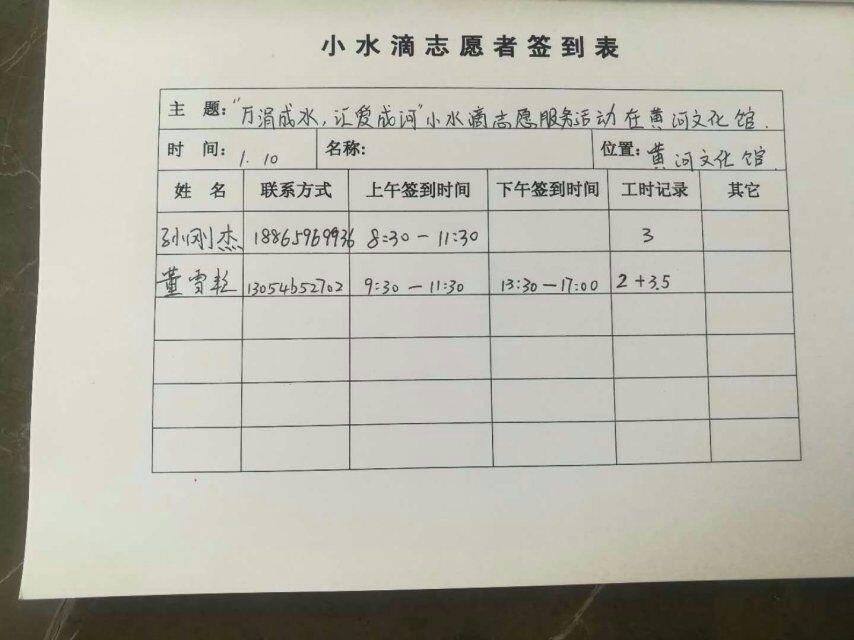 小水滴志愿者签到表
主 题："万涓成水，汇爱成河"小水滴志愿服务活动在黄河文化馆.
时 间：1.10 名称： 位置：黄河文化馆.
姓 名 联系方式 上午签到时间 下午签到时间 工时记录 其它
孙刚杰 18865969936 8:30－11:30 3
董雪 13054652702 9:30－11:30 13:30－17:00 2+3.5